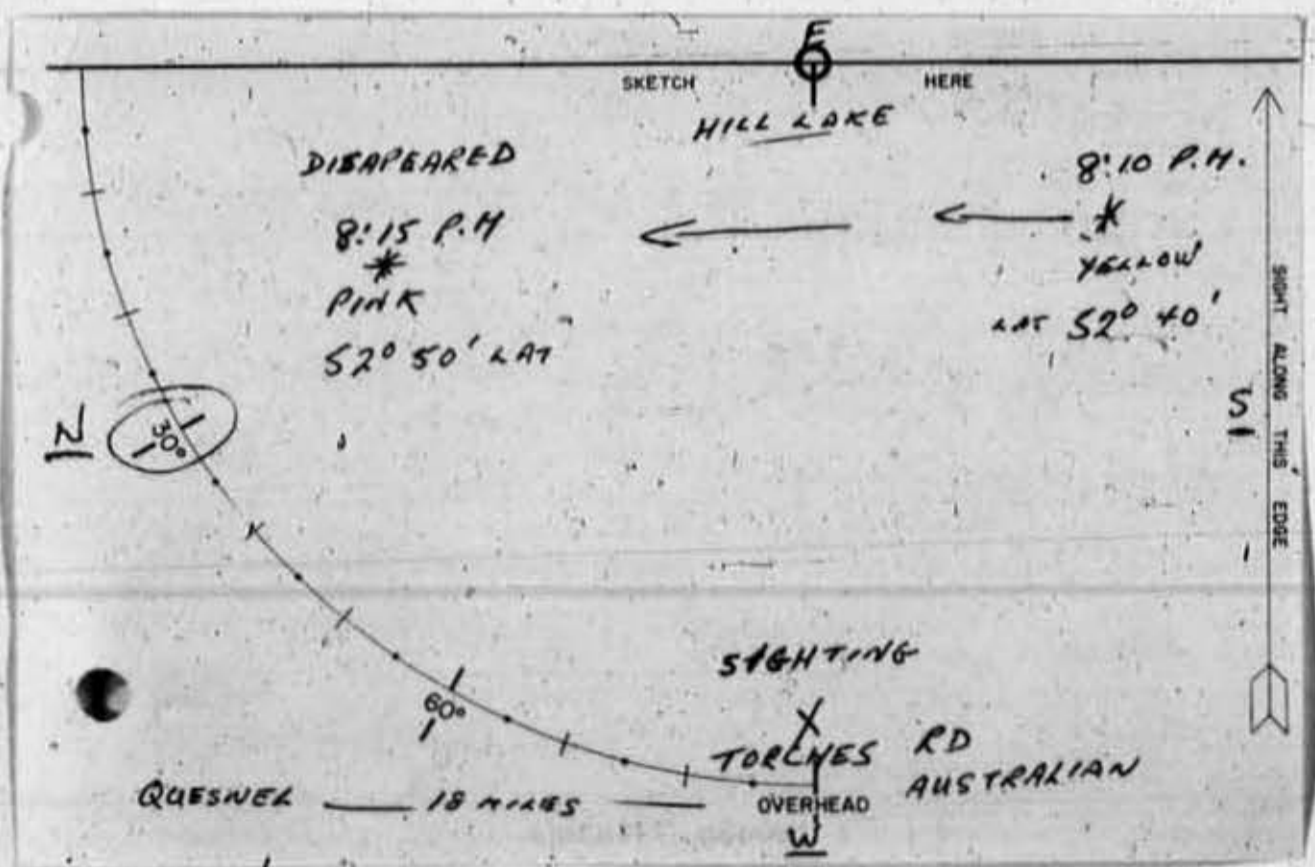 E
SKETCH HERE
HILL LAKE
DISAPEARED
8:15 P.M
*
PINK
52° 50' LAT
8:10 P.M.
*
YELLOW
LAT 52° 40'
N
30°
S
SIGHT ALONG THIS EDGE
60°
SIGHTING
X
TORCHES RD
AUSTRALIAN
QUESNEL — 18 MILES —
OVERHEAD
W